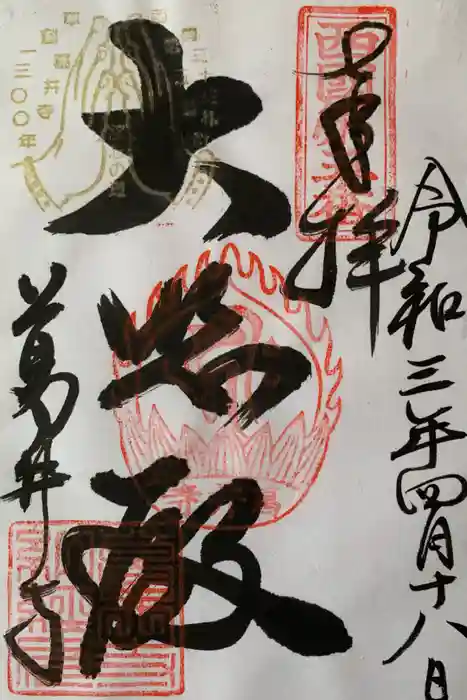 奉拝
令和三年四月十八日
大悲殿
葛井寺
一三〇〇年